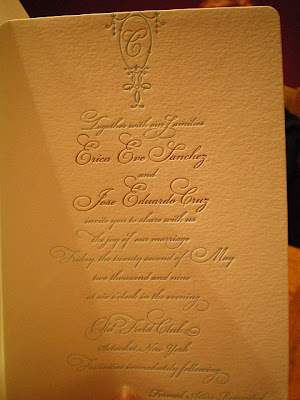 C
Together with our Families
Erica Eve Sanchez
and
Jose Eduardo Cruz
invite you to share with us
the joy of our marriage
Friday, the twenty second of May
two thousand and nine
at six o'clock in the evening
Old Field Club
Setauket, New York
Festivities immediately following
Formal Attire Requested